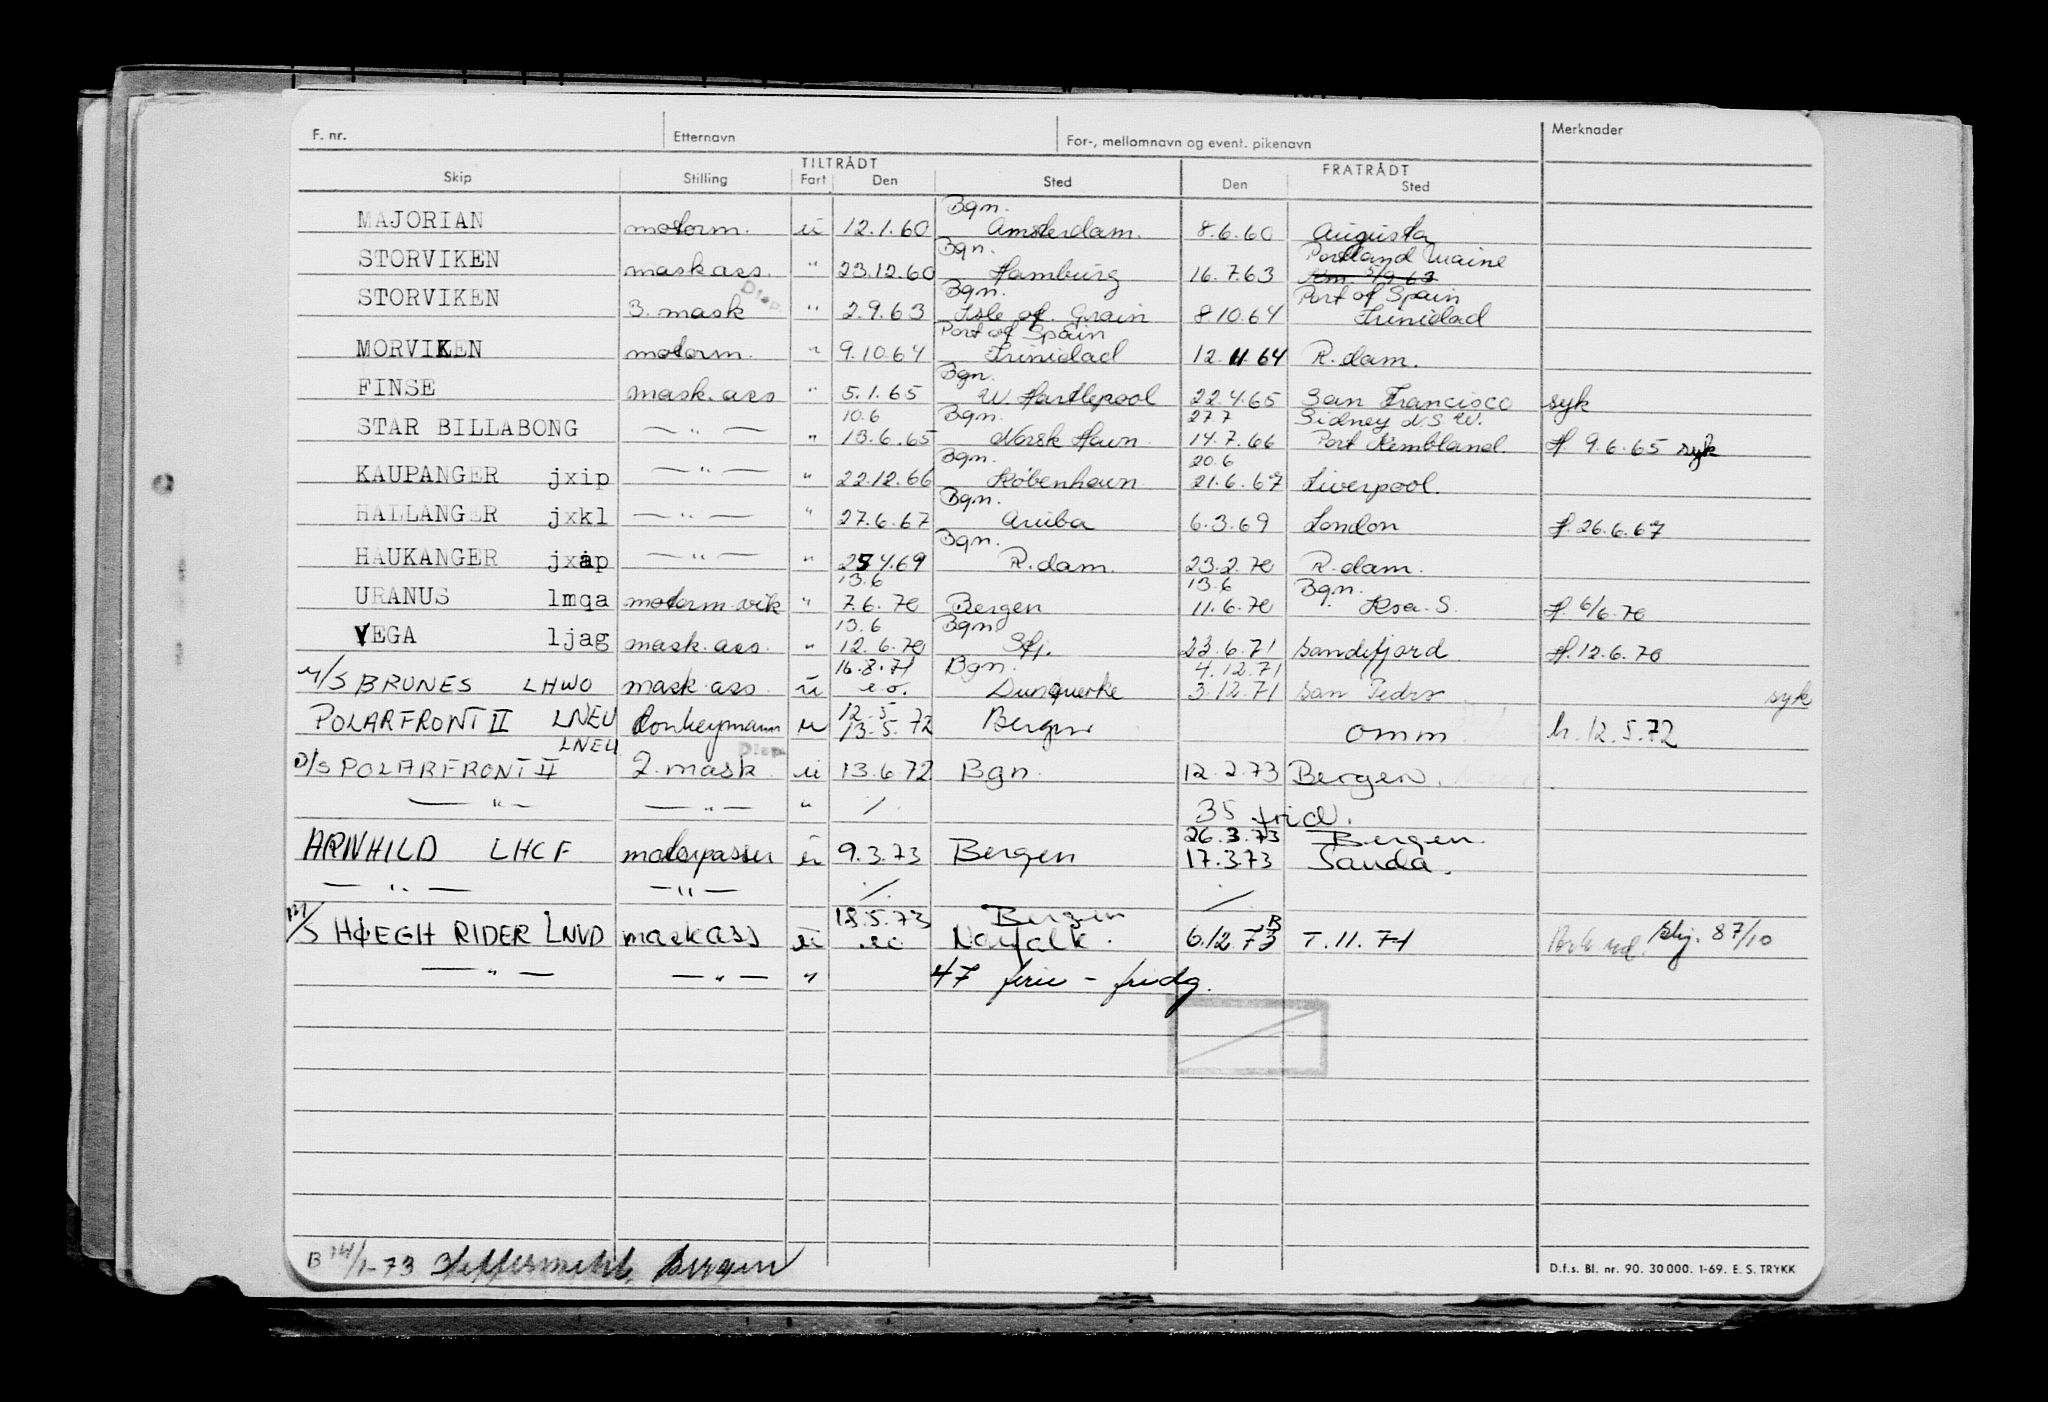 F. nr. Etternavn For-, mellomnavn og event. pikenavn Merknader
TILTRÅDT FRATRÅDT
Skip Stilling Fart Den Sted Den Sted
Bgn.
MAJORIAN motorm. u 12.1.60 Amsterdam. 8.6.60 Augusta
Bgn. Portland Maine
STORVIKEN mask ass. " 23.12.60 Hamburg 16.7.63
Disp Bgn. Port of Spain
STORVIKEN 3. mask " 2.9.63 Isle of. Grain 8.10.64 Trinidad
Port of Spain
MORVIKEN motorm. " 9.10.64 Trinidad 12.11.64 R.dam.
Bgn.
FINSE mask.ass " 5.1.65 W. Hartlepool 22.4.65 San Francisco syk
10.6 Bgn. 27.7 Sidney N.S.W.
STAR BILLABONG — " — " 13.6.65 Norsk Havn. 14.7.66 Port Kembland. H 9.6.65 syk
Bgn. 20.6
KAUPANGER jxip — " — " 22.12.66 København 21.6.67 Liverpool.
Bgn.
HALLANGER jxkl — " — " 27.6.67 Aruba 6.3.69 London H. 26.6.67
Bgn.
HAUKANGER jxap — " — " 25.4.69 R.dam. 23.2.70 R.dam.
13.6 13.6 Bgn.
URANUS lmqa motorm.vik " 7.6.70 Bergen 11.6.70 Krsa. S. H. 6/6.70
13.6 Bgn
VEGA ljag mask.ass. " 12.6.70 Sfj. 23.6.71 Sandefjord H.12.6.70
16.8.71 Bgn. 4.12.71
M/S BRUNES LHWO mask ass. u e.o. Dunquerke 3.12.71 San Pedro syk
12.5
POLARFRONT II LNEU donkeymann u 13.5.72 Bergen omm. h.12.5.72
LNEU Disp
D/S POLARFRONT II 2. mask. u 13.6.72 Bgn. 12.2.73 Bergen.
— " — — " — " ./. 35 frid.
26.3.73 Bergen.
ARNHILD LHCF motorpasser u 9.3.73 Bergen 17.3.73 Sauda.
— " — — " — ./. ./.
18.5.73 Bergen B
M/S HØEGH RIDER LNVD maskass u eo Norfolk. 6.12.73 T.11.71 skj. 87/10
— " — — " — " 47 ferie - fridg.
B 14/1-73 Bergen
D.f.s. Bl. nr. 90. 30 000. 1-69. E. S. TRYKK